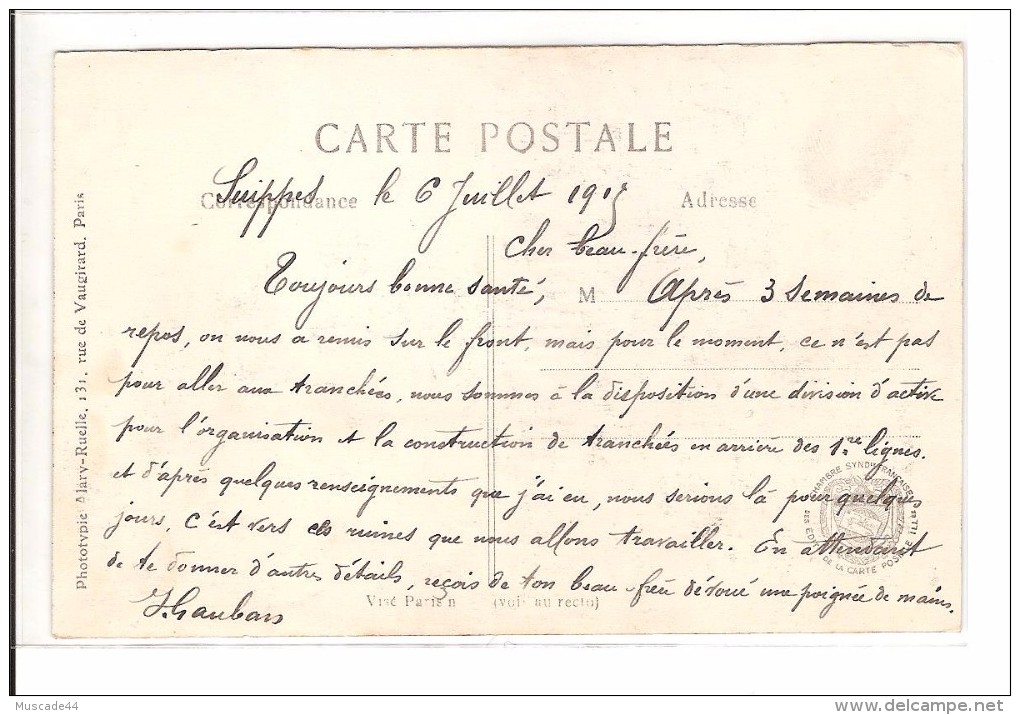 CARTE POSTALE
Suippes le 6 Juillet 1915
Correspondance
Adresse
Cher beau-frère,
Toujours bonne santé, M Après 3 Semaines de
repos, on nous a remis sur le front, mais pour le moment, ce n'est pas
pour aller aux tranchées, nous sommes à la disposition d'une division d'active
pour l'organisation et la construction de tranchées en arrière des 1re lignes.
et d'après quelques renseignements que j'ai eu, nous serions là pour quelques
jours, c'est vers ces ruines que nous allons travailler. En attendant
de te donner d'autres détails, reçois de ton beau-frère dévoué une poignée de mains.
Visé Paris n (voir au recto)
Phototypie Marv-Ruelle, 131, rue de Vaugirard, Paris
CHAMBRE SYNDle FRANÇAISE
DE LA CARTE POSTALE ILLée
Muscade44
www.delcampe.net